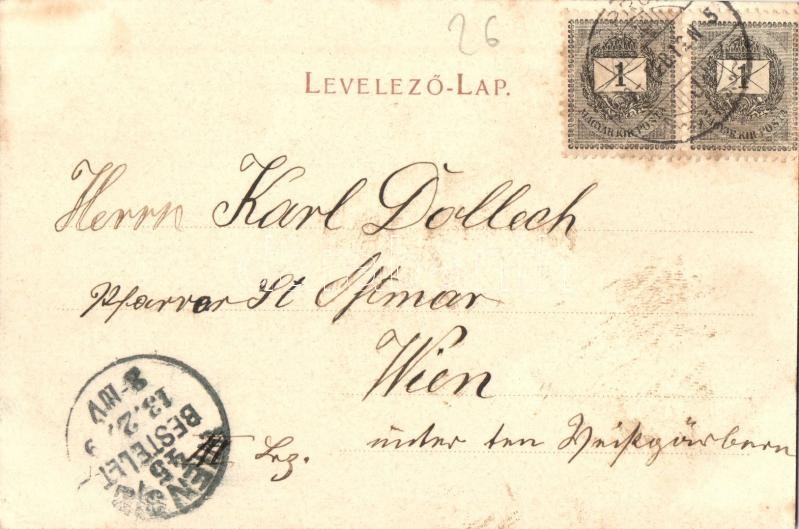 26
LEVELEZŐ-LAP.
1 1
MAGYAR KIR. POSTA MAGYAR KIR. POSTA
Herrn Karl Dollech
Pfarrer St Othmar
Wien
III Bez. unter den Weißgärbern
WIEN
BESTELLT
13.2.